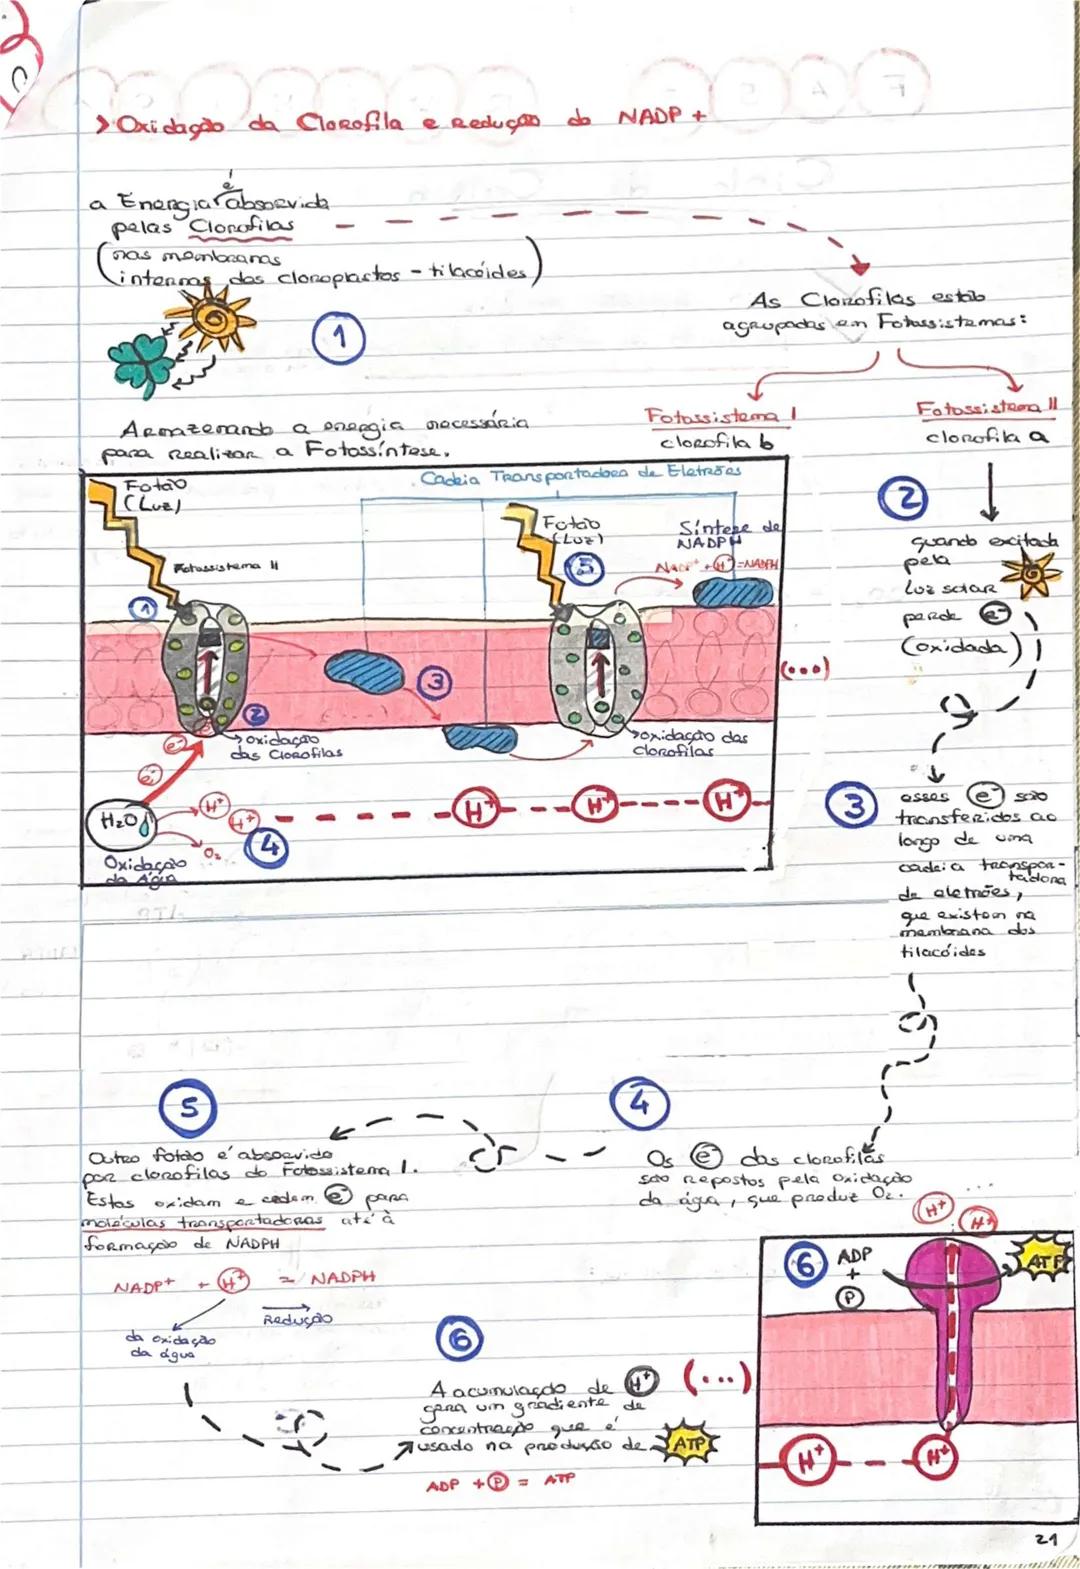 > Oxidação da Clorofila e Redução do NADP+
a Energia é absorvida
pelas Clorofilas
(nas membranas
internas dos cloroplastos - tilacóides)
1
Armazenando a energia necessária
para realizar a Fotossíntese.
As Clorofilas estão
agrupadas em Fotossistemas:
Fotossistema I
clorofila b
Fotossistema II
clorofila a
Cadeia Transportadora de Eletrões
Fotão
(Luz)
Fotossistema II
1
2
oxidação
das Clorofilas
3
Fotão
(Luz)
5
Síntese de
NADPH
NADP+ + H+ = NADPH
oxidação das
Clorofilas
(...)
e-
e-
H2O
H+
H+
O2
4
H+
H+
H+
Oxidação
da Água
2
quando excitada
pela
luz solar
perde e-
(oxidada)
3
esses e- são
transferidos ao
longo de uma
cadeia transpor-
tadora
de eletrões,
que existem na
membrana dos
tilacóides
4
Os e- das clorofilas
são repostos pela oxidação
da água, que produz O2.
5
Outro fotão é absorvido
por clorofilas do Fotossistema I.
Estas oxidam e cedem e- para
moléculas transportadoras até à
formação de NADPH
NADP+ + H+ = NADPH
Redução
da oxidação
da água
6
A acumulação de H+
gera um gradiente de
concentração que é
usado na produção de ATP
ADP + P = ATP
(...)
...
H+
H+
6
ADP
+
P
ATP
H+
H+
21